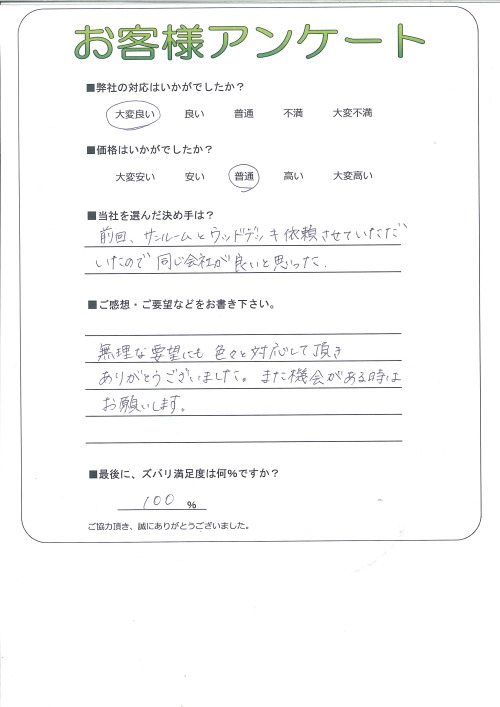 お客様アンケート
■弊社の対応はいかがでしたか？
大変良い 良い 普通 不満 大変不満
■価格はいかがでしたか？
大変安い 安い 普通 高い 大変高い
■当社を選んだ決め手は？
前回、サンルームとウッドデッキ依頼させていただだ
いたので同じ会社が良いと思った.
■ご感想・ご要望などをお書き下さい。
無理な要望にも色々と対応して頂き
ありがとうございました。また機会がある時は
お願いします。
■最後に、ズバリ満足度は何%ですか？
100 %
ご協力頂き、誠にありがとうございました。